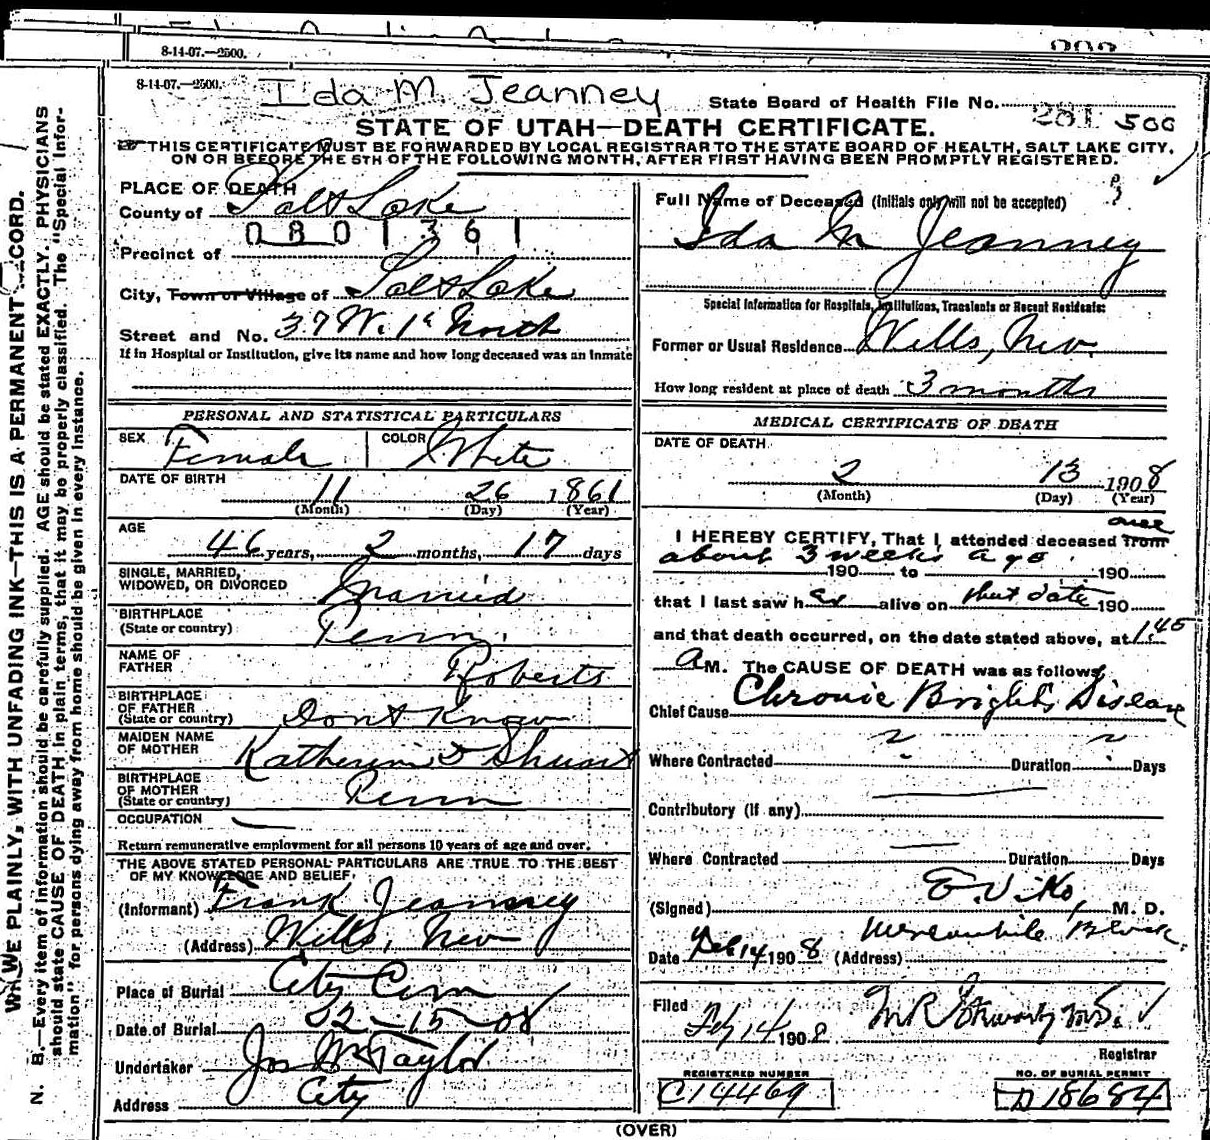 8-14-07.—2500.
8-14-07.—2500.
Ida M. Jeanney
State Board of Health File No. 201 500
STATE OF UTAH—DEATH CERTIFICATE.
THIS CERTIFICATE MUST BE FORWARDED BY LOCAL REGISTRAR TO THE STATE BOARD OF HEALTH, SALT LAKE CITY,
ON OR BEFORE THE 5TH OF THE FOLLOWING MONTH, AFTER FIRST HAVING BEEN PROMPTLY REGISTERED.
PLACE OF DEATH
County of Salt Lake
0801361
Precinct of
City, Town or Village of Salt Lake
Street and No. 37 W. 1st North
If in Hospital or Institution, give its name and how long deceased was an inmate
PERSONAL AND STATISTICAL PARTICULARS
SEX Female COLOR White
DATE OF BIRTH 11 26 1861
(Month) (Day) (Year)
AGE 46 years, 2 months, 17 days
SINGLE, MARRIED,
WIDOWED, OR DIVORCED Married
BIRTHPLACE
(State or country) Penn.
NAME OF
FATHER Roberts
BIRTHPLACE
OF FATHER
(State or country) Dont Know
MAIDEN NAME
OF MOTHER Katherin
BIRTHPLACE
OF MOTHER
(State or country) Penn
OCCUPATION —
Return remunerative employment for all persons 10 years of age and over.
THE ABOVE STATED PERSONAL PARTICULARS ARE TRUE TO THE BEST
OF MY KNOWLEDGE AND BELIEF
(Informant) Frank Jeanney
(Address) Wells, Nev
Place of Burial City Cem
Date of Burial 2-15-08
Undertaker Jos Wm Taylor
Address City
Full Name of Deceased (Initials only will not be accepted)
Ida M Jeanney
Special Information for Hospitals, Institutions, Transients or Recent Residents:
Former or Usual Residence Wells, Nev.
How long resident at place of death 3 months
MEDICAL CERTIFICATE OF DEATH
DATE OF DEATH
2 13 1908
(Month) (Day) (Year)
once
I HEREBY CERTIFY, That I attended deceased from
about 3 weeks ago
190 to 190
that I last saw her alive on that date 190
and that death occurred, on the date stated above, at 1:45
A M. The CAUSE OF DEATH was as follows,
Chief Cause Chronic Brights Disease
Where Contracted ? Duration ? Days
Contributory (If any) —
Where Contracted — Duration Days
(Signed) E. Viko, M. D.
Date Feb 14 1908 (Address) Block.
Filed Feb 14 1908 M.R.
Registrar
REGISTERED NUMBER
C14469
NO. OF BURIAL PERMIT
D18684
(OVER)
WRITE PLAINLY, WITH UNFADING INK—THIS IS A PERMANENT RECORD.
N. B.—Every item of information should be carefully supplied. AGE should be stated EXACTLY. PHYSICIANS
should state CAUSE OF DEATH in plain terms, that it may be properly classified. The "Special Infor-
mation" for persons dying away from home should be given in every instance.